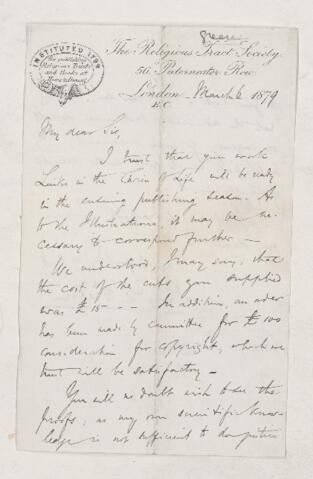 INSTITUTED 1799
For publishing
Religious Tracts
and Books at
Home & Abroad
The Religious Tract Society
56 Paternoster Row
London March 6 1879
E.C.
My dear Sir,
I trust that your work
Links in the Chain of Life will be ready
in the ensuing publishing season. As
to the Illustrations, it may be ne-
cessary to correspond further —
We understood, I may say, that
the cost of the cuts you supplied
was £15 - - In addition, an order
has been made by committee for £100
consideration for copyright, which we
trust will be satisfactory —
You will no doubt wish to see the
proofs, as my own scientific know-
ledge is not sufficient to